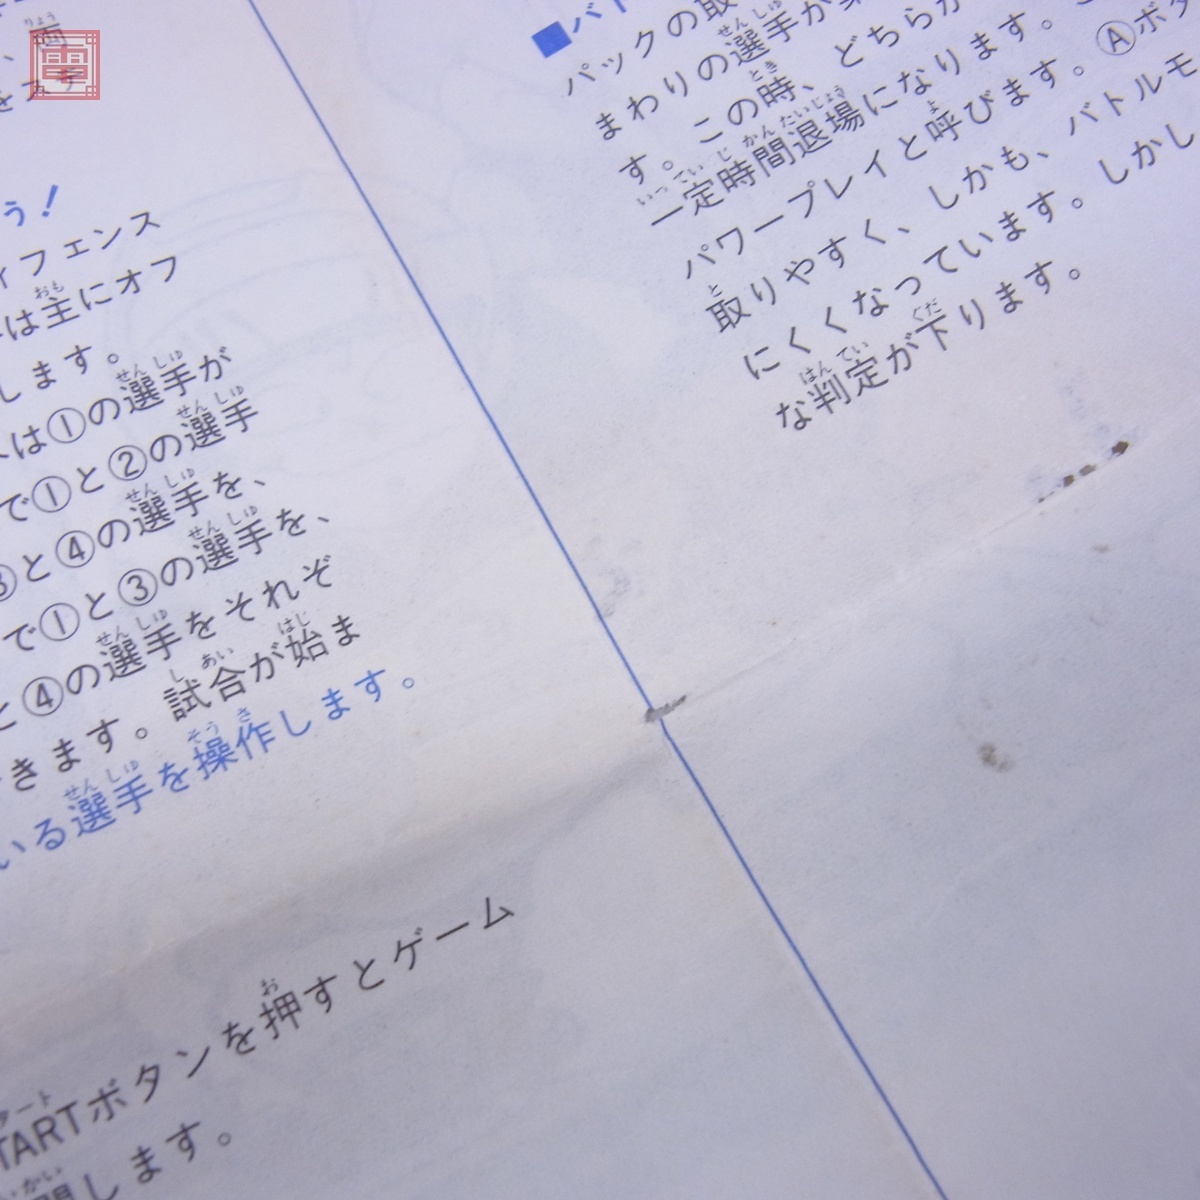 両
をスケ
う！
ィフェンス
は主にオフ
します。
は①の選手が
で①と②の選手
③と④の選手を、
で①と③の選手を、
と④の選手をそれぞ
きます。試合が始ま
いる選手を操作します。
TARTボタンを押すとゲーム
開します。
■バト
パックの取
まわりの選手が
す。この時、どちらか
一定時間退場になります。
パワープレイと呼びます。Ⓐボタ
取りやすく、しかも、バトルモ
にくくなっています。しかし
な判定が下ります。